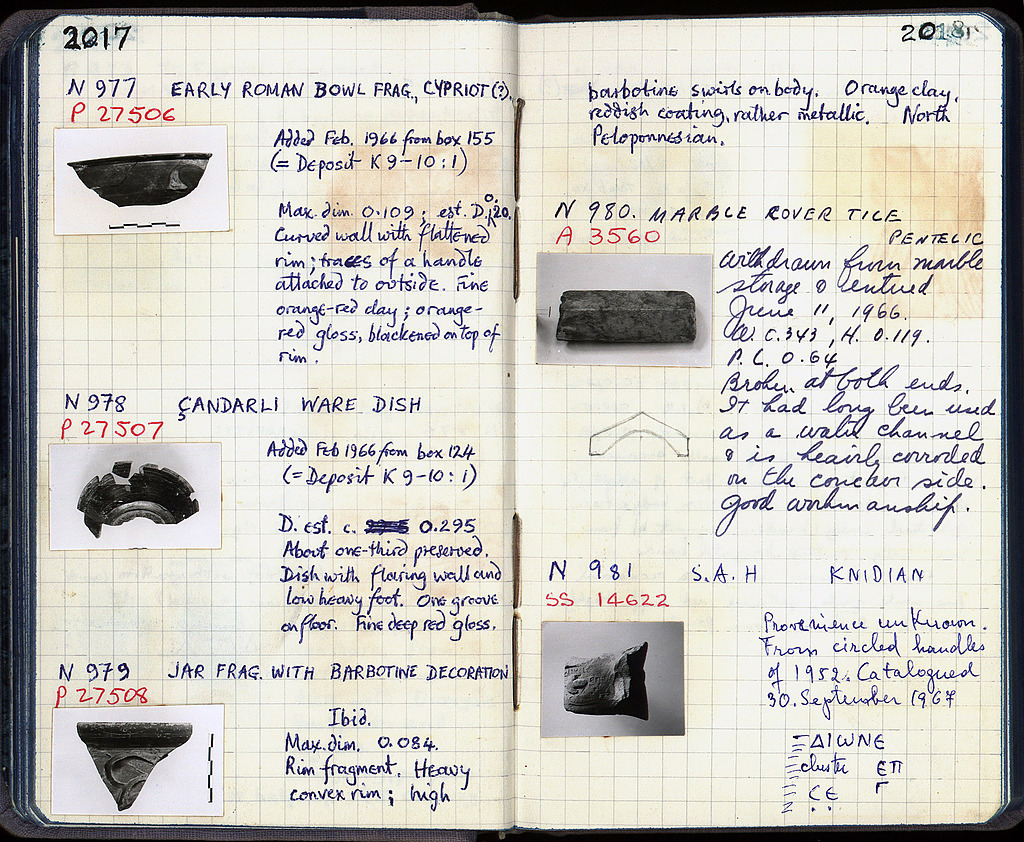 2017
N 977 EARLY ROMAN BOWL FRAG., CYPRIOT(?).
P 27506
Added Feb. 1966 from box 155
(= Deposit K 9-10 : 1)
Max. dim. 0.109 ; est. D. 0.20.
Curved wall with flattened
rim ; traces of a handle
attached to outside. Fine
orange-red clay ; orange-
red gloss, blackened on top of
rim.
N 978 ÇANDARLI WARE DISH
P 27507
Added Feb 1966 from box 124
(= Deposit K 9-10 : 1)
D. est. c. 0.295
About one-third preserved.
Dish with flaring wall and
low heavy foot. One groove
on floor. Fine deep red gloss.
N 979 JAR FRAG. WITH BARBOTINE DECORATION
P 27508
Ibid.
Max. dim. 0.084.
Rim fragment. Heavy
convex rim ; high
2018
barbotine swirls on body. Orange clay,
reddish coating, rather metallic. North
Peloponnesian.
N 980. MARBLE COVER TILE
A 3560 PENTELIC
Withdrawn from marble
storage & entered
June 11, 1966.
W. c. .343, H. 0.119.
P. L. 0.64
Broken at both ends.
It had long been used
as a water channel
& is heavily corroded
on the concave side.
Good workmanship.
N 981 S.A.H KNIDIAN
SS 14622
Provenience unknown.
From circled handles
of 1952. Catalogued
30. September 1967
ΔΙѠΝΕ
cluster ΕΠ
Γ
СЄ